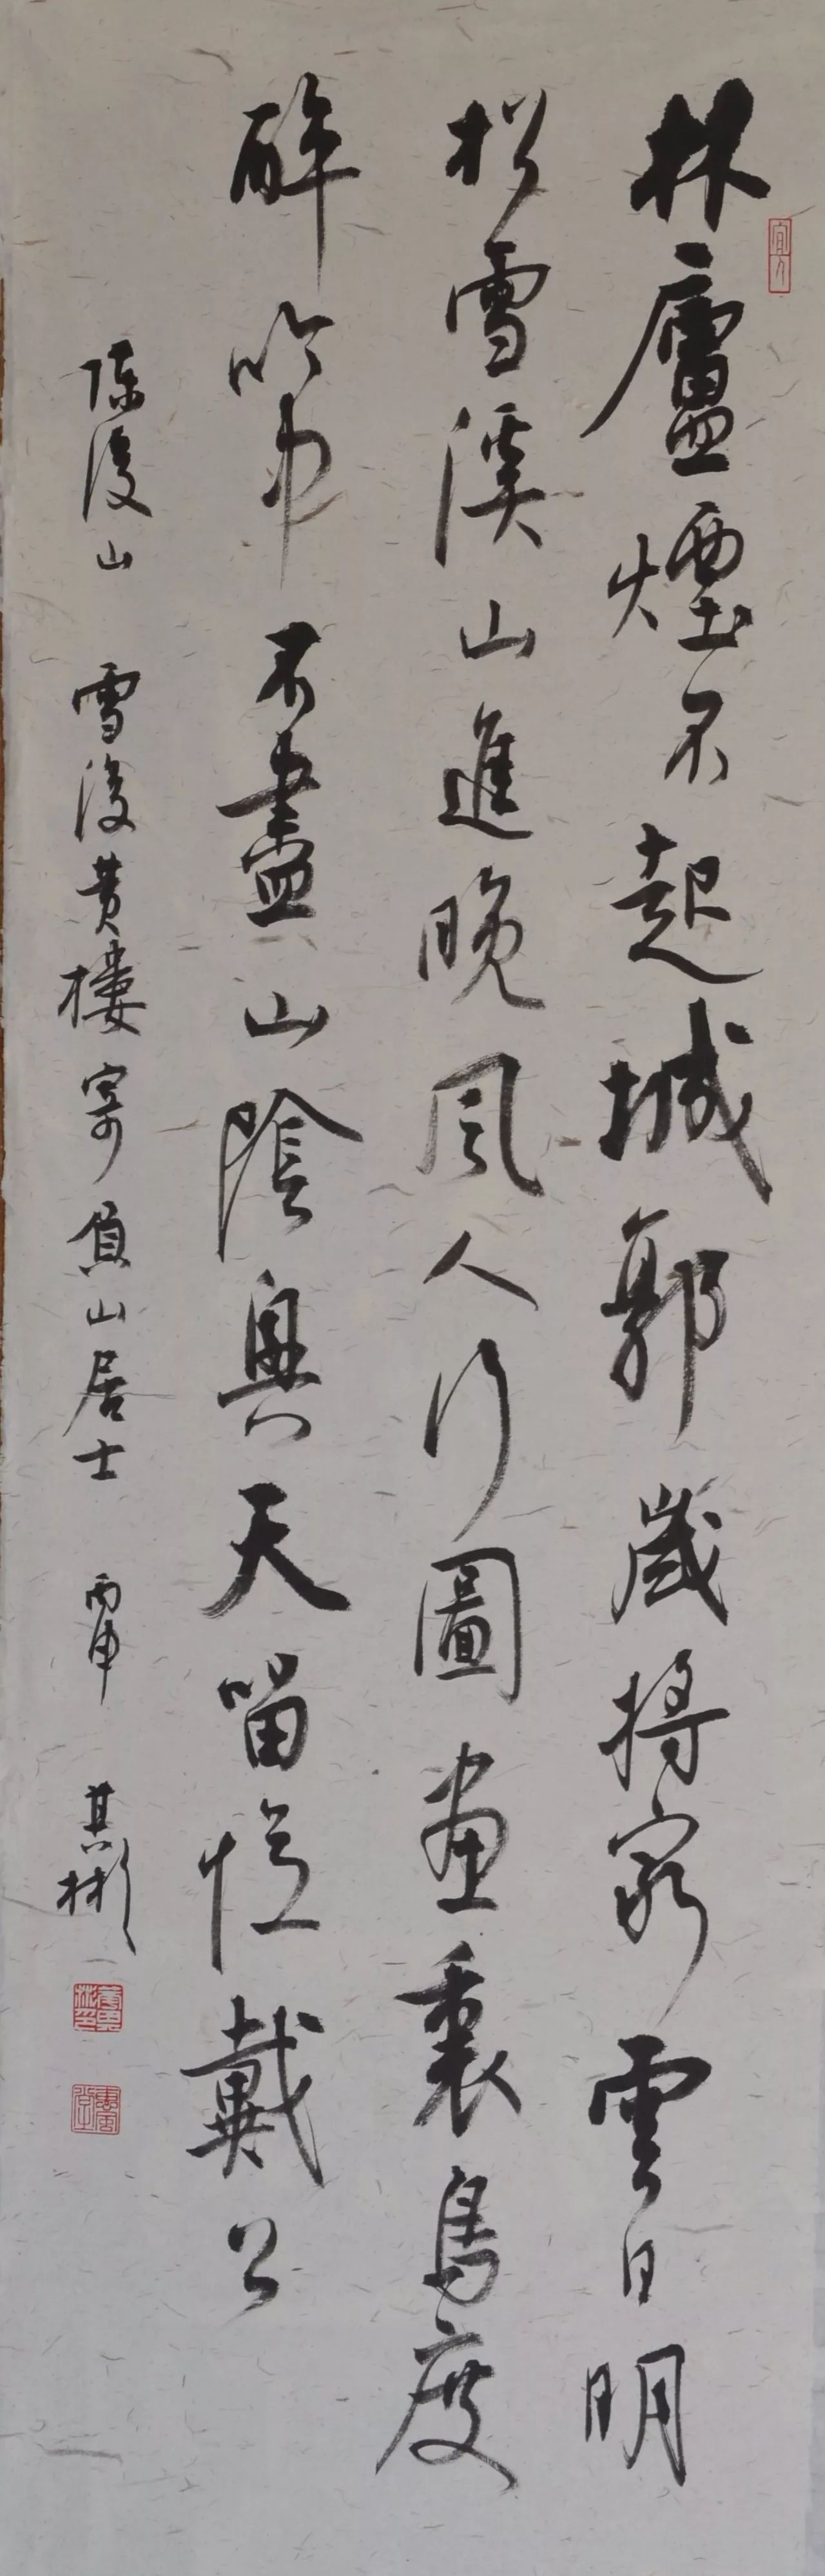 林廬煙不起城郭歲將窮雲日明
松雪溪山進晚風人行圖畫裏鳥度
醉吟中不盡山陰興天留憶戴公
陳後山 雪後黃樓寄負山居士 丙申 其彬